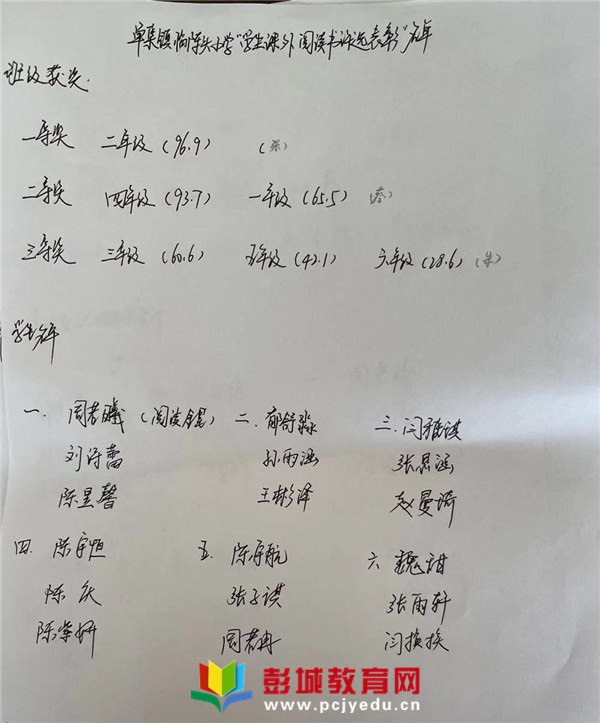 单集镇临陈头小学"学生课外阅读书评选表彰"名单
班级获奖
一等奖 二年级(96.9)
二等奖 四年级(93.7) 一年级(65.5)
三等奖 三年级(60.6) 五年级(42.1) 六年级(28.6)
学生名单
一. 周若曦 二. 三. 闫雅淇
刘诗蕾 孙雨涵 张思涵
陈昱馨 王彬泽 赵曼琦
四. 陈宇恒 五. 陈宇航 六 魏甜
陈庆 张子淇 张雨轩
陈紫妍 周若冉 闫换换
彭城教育网
www.pcjyedu.cn